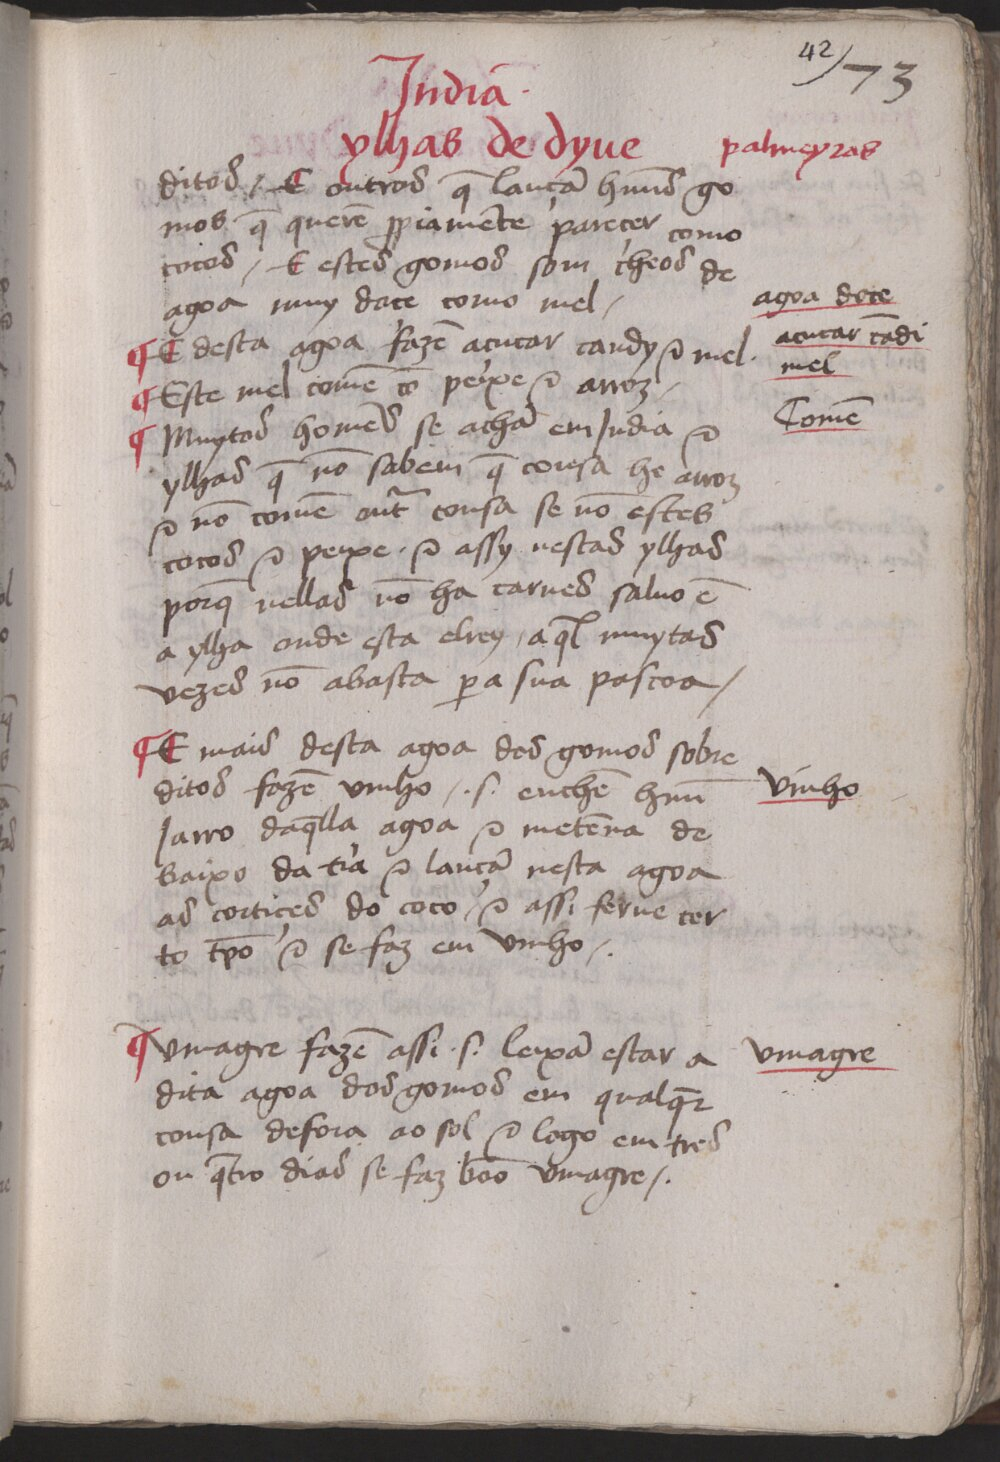 42/73
Jndia.
ylhas de dyue
palmeyras
ditos /. E outros q̄ lançã hũus go
mos q̄ querẽ ꝓpiamẽte parecer como
cocos / E estes gomos som cheos de
agoa muy doce como mel /
agoa doce
¶ E desta agoa fazẽ açucar candy ⁊ mel.
açucar cãdi
mel
¶ Este mel comẽ cõ peixe ⁊ arroz /
Comẽ
¶ Muytos homẽs se achã em Jndia ⁊
ylhas q̄ nõ sabem q̄ cousa he arroz
⁊ nõ comẽ outr̃ cousa se nõ estes
cocos ⁊ peixe. ⁊ assy nestas ylhas
porq̄ nellas nõ ha carnes saluo ẽ
a ylha onde esta elrey, a q̄l muytas
vezes nõ abasta ꝑa sua pascoa /
¶ E mais desta agoa dos gomos sobre
ditos fazẽ vinho /. s. enchẽ hũu
vinho
Jarro daq̄lla agoa ⁊ metẽna de
baixo da tr̃a ⁊ lançã nesta agoa
as cortiças do coco, ⁊ assi ferue cer
to tp̄o ⁊ se faz em vinho /.
¶ vinagre fazẽ assi. s. leixã estar a
vinagre
dita agoa dos gomos em qualq̄r
cousa de fora ao sol ⁊ logo em tres
ou q̄tro dias se faz bõo vinagre /.